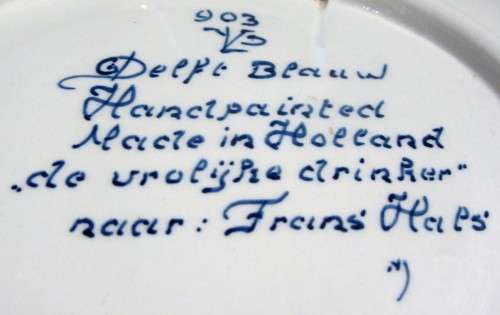 903
Delft Blauw
Handpainted
Made in Holland
„de vrolijke drinker"
naar: Frans Hals